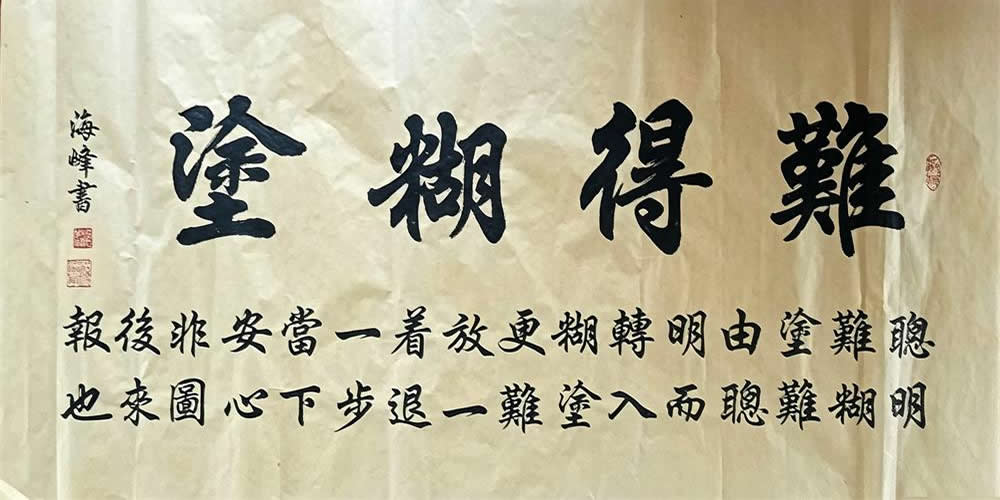 難得糊塗
聰明
難糊
塗難
由聰
明而
轉入
糊塗
更難
放一
着退
一步
當下
安心
非圖
後來
報也
海峰書